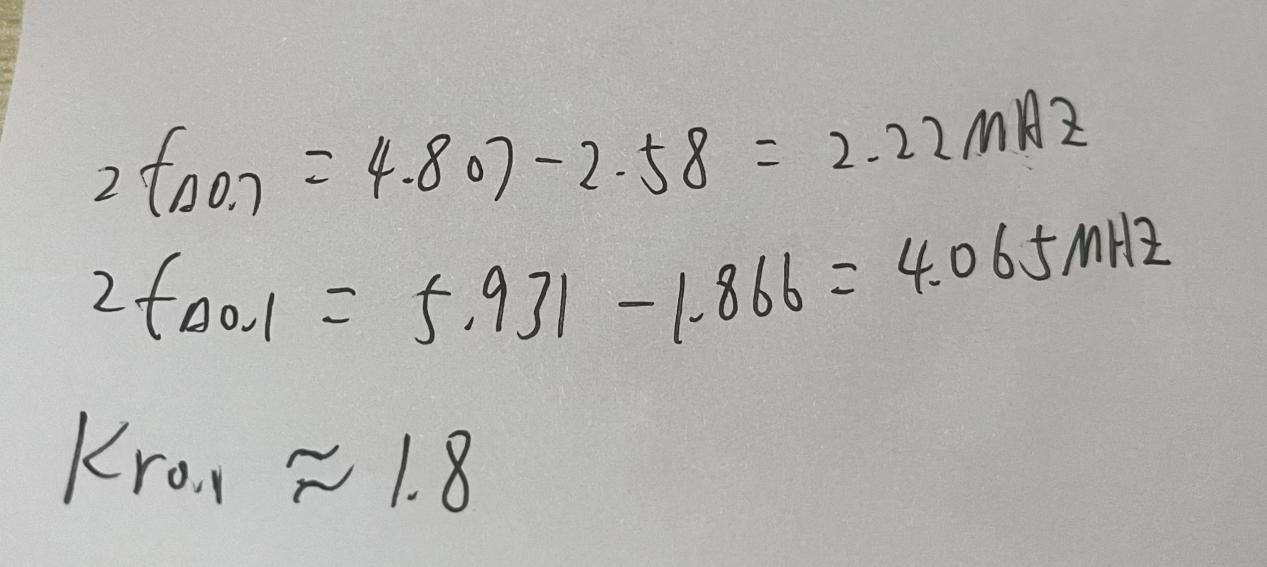 2fΔ0.7 = 4.807-2.58 = 2.22MHZ
2fΔ0.1 = 5.931-1.866 = 4.065MHZ
Kr0.1 ≈ 1.8